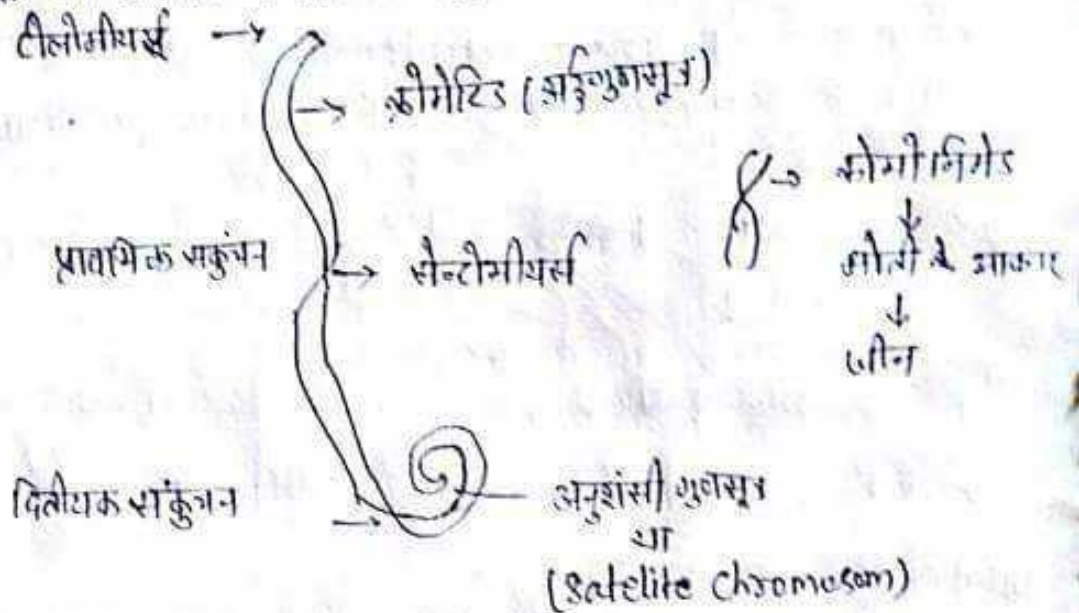 टीलोमीयर्स →
→ क्रोमेटिड (अर्द्धगुणसूत्र)
→ क्रोमोनिमेड
↓
मोती के आकार
↓
जीन
प्राथमिक संकुंचन → सेन्टोमीयर्स
द्वितीयक संकुंचन →
अनुशंसी गुणसूत्र
या
(Satelite Chromosom)